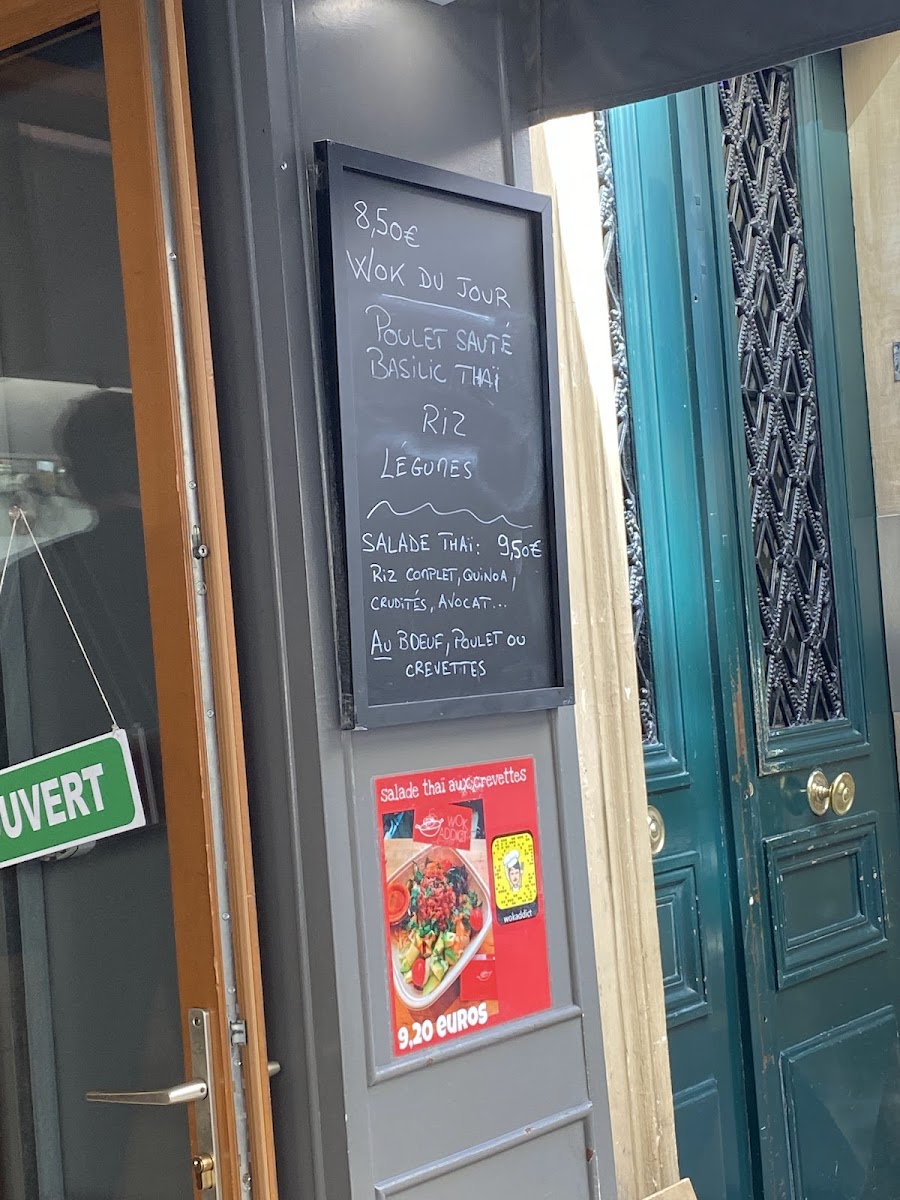 8,50€
WOK DU JOUR
POULET SAUTÉ
BASILIC THAÏ
RIZ
LÉGUMES
SALADE THAÏ: 9,50€
RIZ COMPLET, QUINOA,
CRUDITÉS, AVOCAT...
AU BOEUF, POULET OU
CREVETTES
UVERT
salade thaï aux crevettes
WOK
ADDICT
wokaddict
9,20 euros